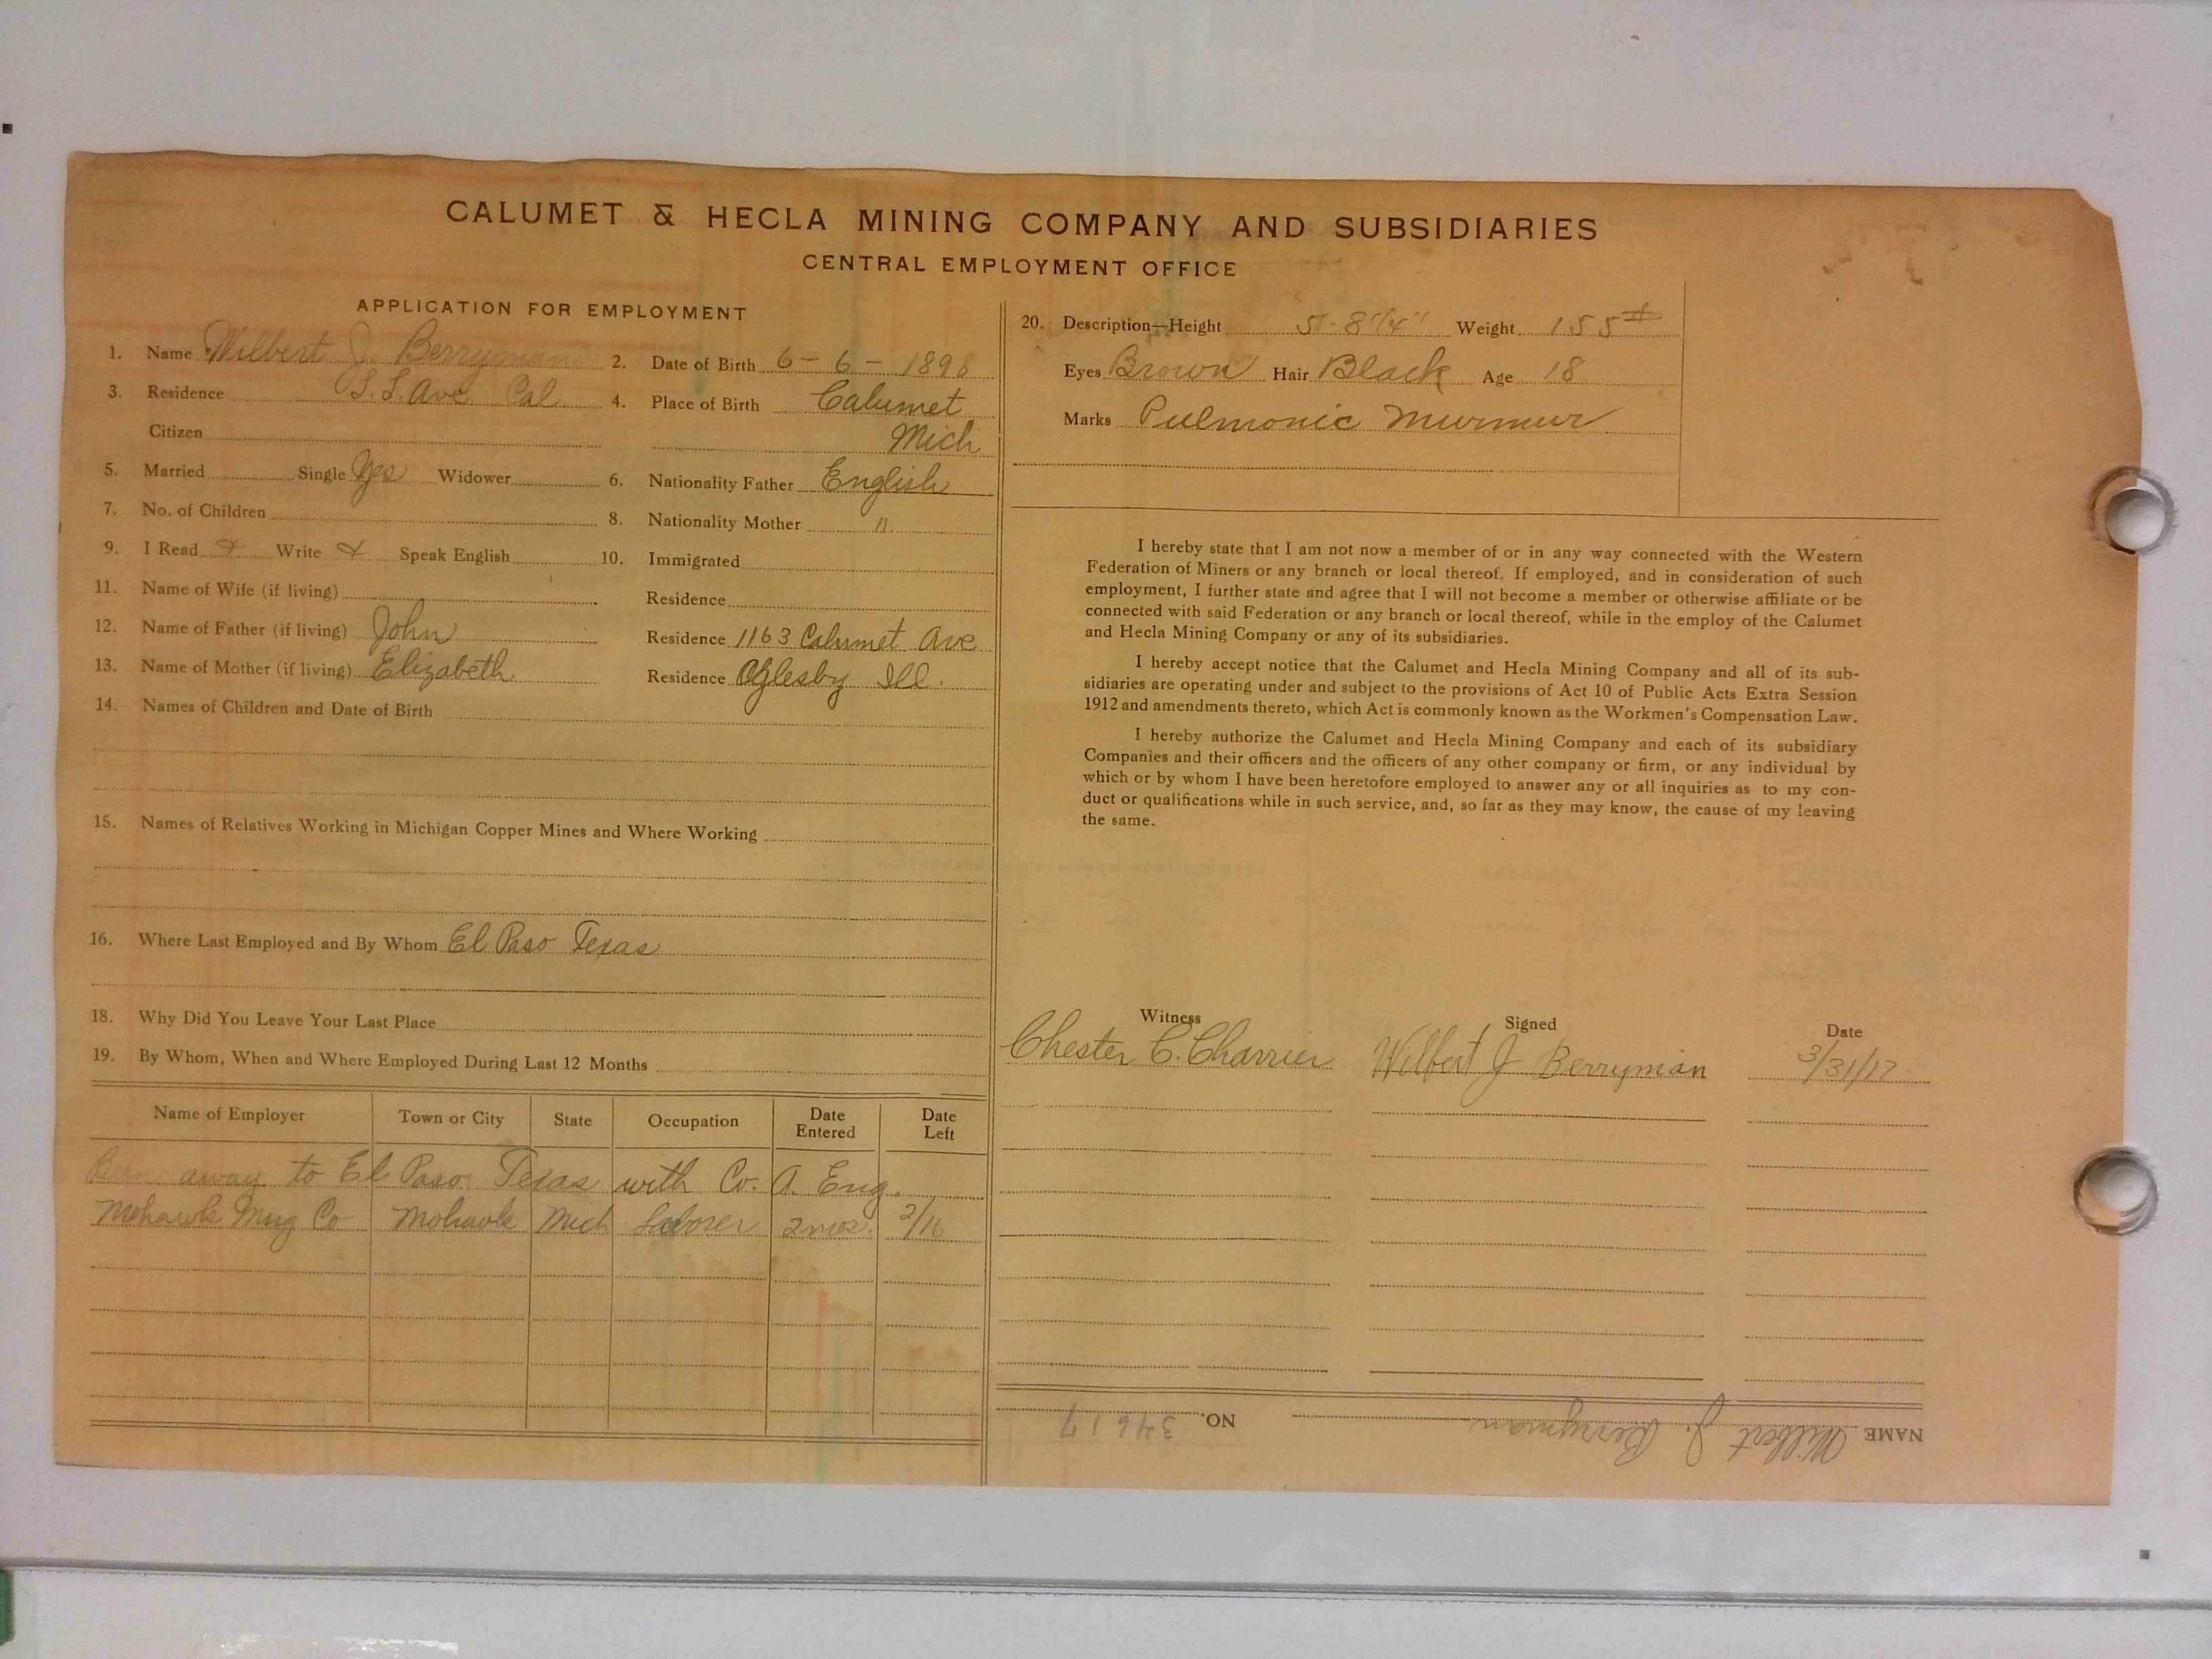 CALUMET & HECLA MINING COMPANY AND SUBSIDIARIES
CENTRAL EMPLOYMENT OFFICE
APPLICATION FOR EMPLOYMENT
1. Name Wilbert J. Berryman 2. Date of Birth 6-6-1898
3. Residence Ave Cal 4. Place of Birth Calumet
Citizen Mich
5. Married Single Yes Widower 6. Nationality Father English
7. No. of Children 8. Nationality Mother "
9. I Read Write Speak English 10. Immigrated
11. Name of Wife (if living) Residence
12. Name of Father (if living) John Residence 1163 Calumet Ave
13. Name of Mother (if living) Elizabeth Residence Oglesby Ill.
14. Names of Children and Date of Birth
15. Names of Relatives Working in Michigan Copper Mines and Where Working
16. Where Last Employed and By Whom El Paso Texas
18. Why Did You Leave Your Last Place
19. By Whom, When and Where Employed During Last 12 Months
Name of Employer Town or City State Occupation Date Entered Date Left
Been away to El Paso Texas with Co. A. Eng.
Mohawk Mng Co Mohawk Mich Laborer 2 mos. 2/16
20. Description—Height 5'-8 1/4" Weight 155#
Eyes Brown Hair Black Age 18
Marks Pulmonic Murmur
I hereby state that I am not now a member of or in any way connected with the Western
Federation of Miners or any branch or local thereof. If employed, and in consideration of such
employment, I further state and agree that I will not become a member or otherwise affiliate or be
connected with said Federation or any branch or local thereof, while in the employ of the Calumet
and Hecla Mining Company or any of its subsidiaries.
I hereby accept notice that the Calumet and Hecla Mining Company and all of its sub-
sidiaries are operating under and subject to the provisions of Act 10 of Public Acts Extra Session
1912 and amendments thereto, which Act is commonly known as the Workmen's Compensation Law.
I hereby authorize the Calumet and Hecla Mining Company and each of its subsidiary
Companies and their officers and the officers of any other company or firm, or any individual by
which or by whom I have been heretofore employed to answer any or all inquiries as to my con-
duct or qualifications while in such service, and, so far as they may know, the cause of my leaving
the same.
Witness Signed Date
Chester C. Charrier Wilbert J Berryman 3/31/17
NAME Wilbert J. Berryman NO. 34617